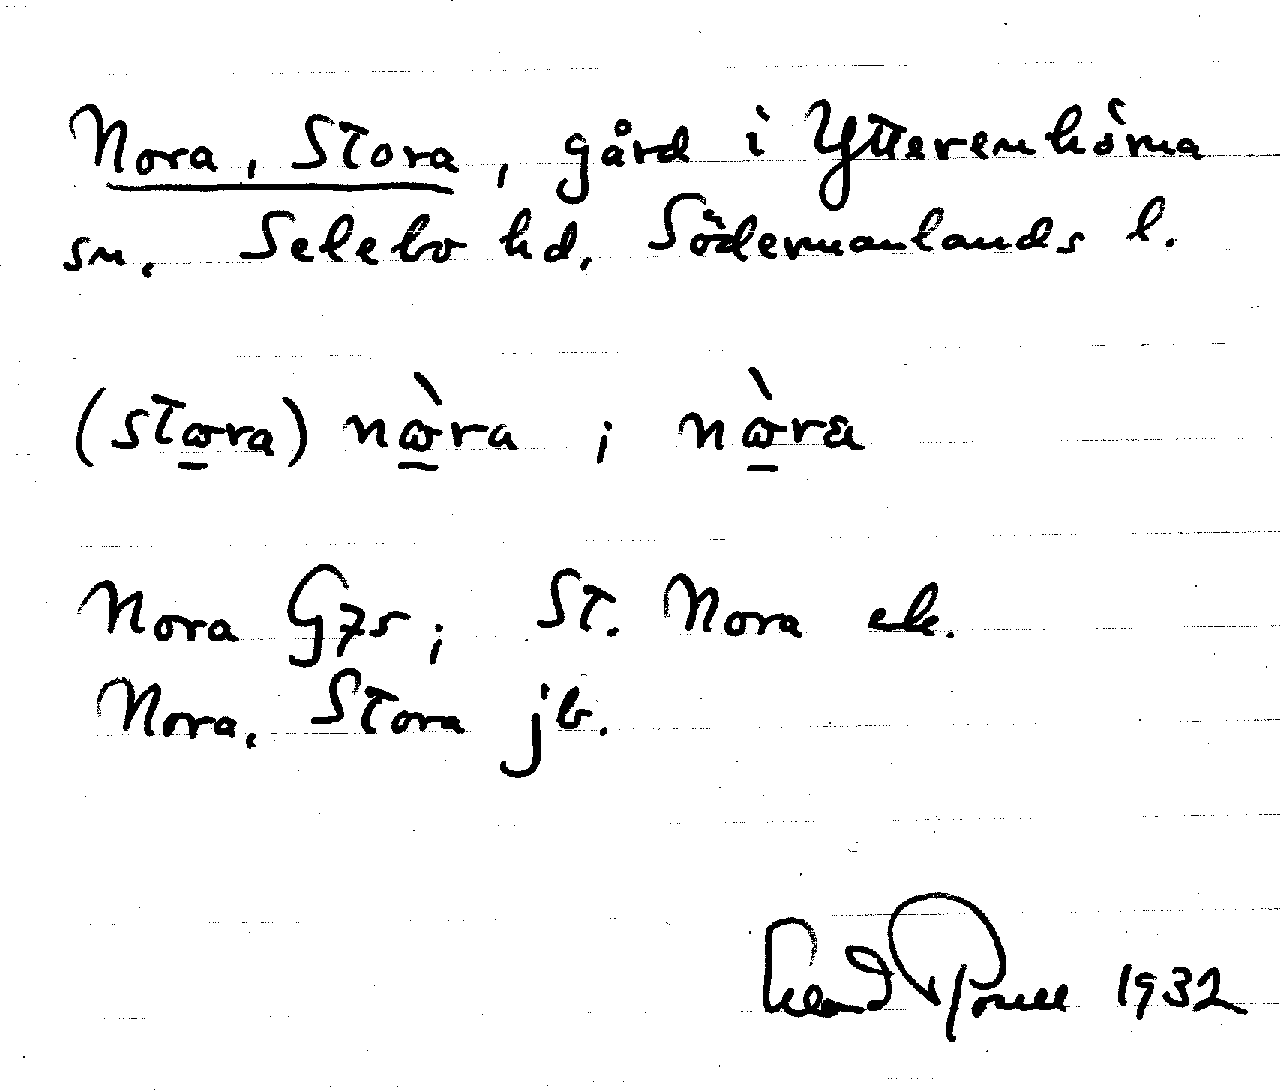 Nora, Stora, gård i Ytterenhörna
sn. Selebo hd. Södermanlands l.
(stꞷra) nꞷ̀ra ; nꞷ̀ra
Nora G7s ; St. Nora ek.
Nora, Stora jb.
1932